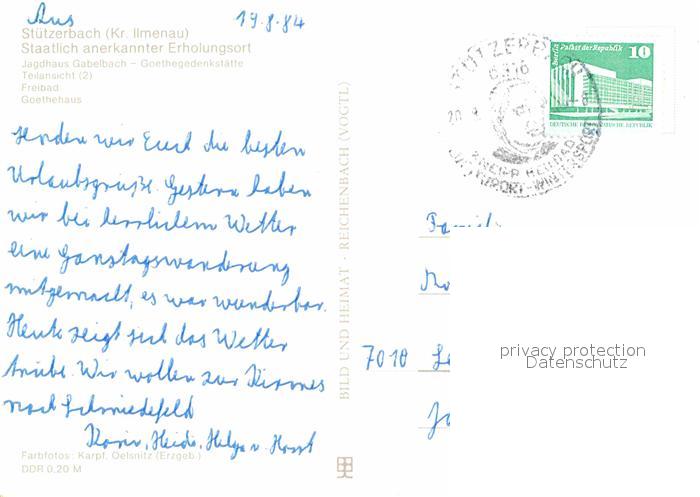 Aus 19.8.84
Stützerbach (Kr. Ilmenau)
Staatlich anerkannter Erholungsort
Jagdhaus Gabelbach – Goethegedenkstätte
Teilansicht (2)
Freibad
Goethehaus
senden wir Euch die besten
Urlaubsgrüße. Gestern haben
wir bei herrlichem Wetter
eine Ganztagswanderung
mitgemacht, es war wunderbar.
Heute zeigt sich das Wetter
trübe. Wir wollen zur Kirmes
nach Schmiedefeld
Karin, Heide, Helga u. Horst
Farbfotos: Karpf, Oelsnitz (Erzgeb.)
DDR 0,20 M
BILD UND HEIMAT · REICHENBACH (VOGTL)
Berlin Palast der Republik 10
DEUTSCHE DEMOKRATISCHE REPUBLIK
STÜTZERBACH
KNEIPP HEILBAD
7010
privacy protection
Datenschutz